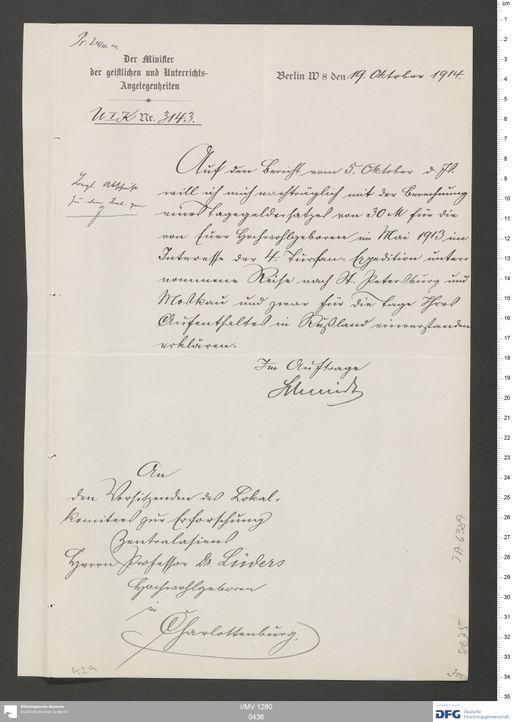 Der Minister
der geistlichen und Unterrichts-
Angelegenheiten
Berlin W 8 den 19. Oktober 1914.
U I K Nr. 3143.
Auf den Bericht vom 5. Oktober d. Js.
will ich mich nachträglich mit der Berechnung
eines Tagegeldersatzes von 30 M für die
von Euer Hochwohlgeboren im Mai 1913 im
Interesse der 4. Turfan-Expedition unter-
nommene Reise nach St. Petersburg und
Moskau und zwar für die Tage Ihres
Aufenthaltes in Rußland einverstanden
erklären.
Im Auftrage
Schmidt
An
den Vorsitzenden des Lokal-
komitees zur Erforschung
Zentralasiens
Herrn Professor Dr. Lüders
Hochwohlgeboren
in
Charlottenburg.
TA 6389
429
Ethnologisches Museum
Staatliche Museen zu Berlin
I/MV 1260
0436
DFG Deutsche
Forschungsgemeinschaft